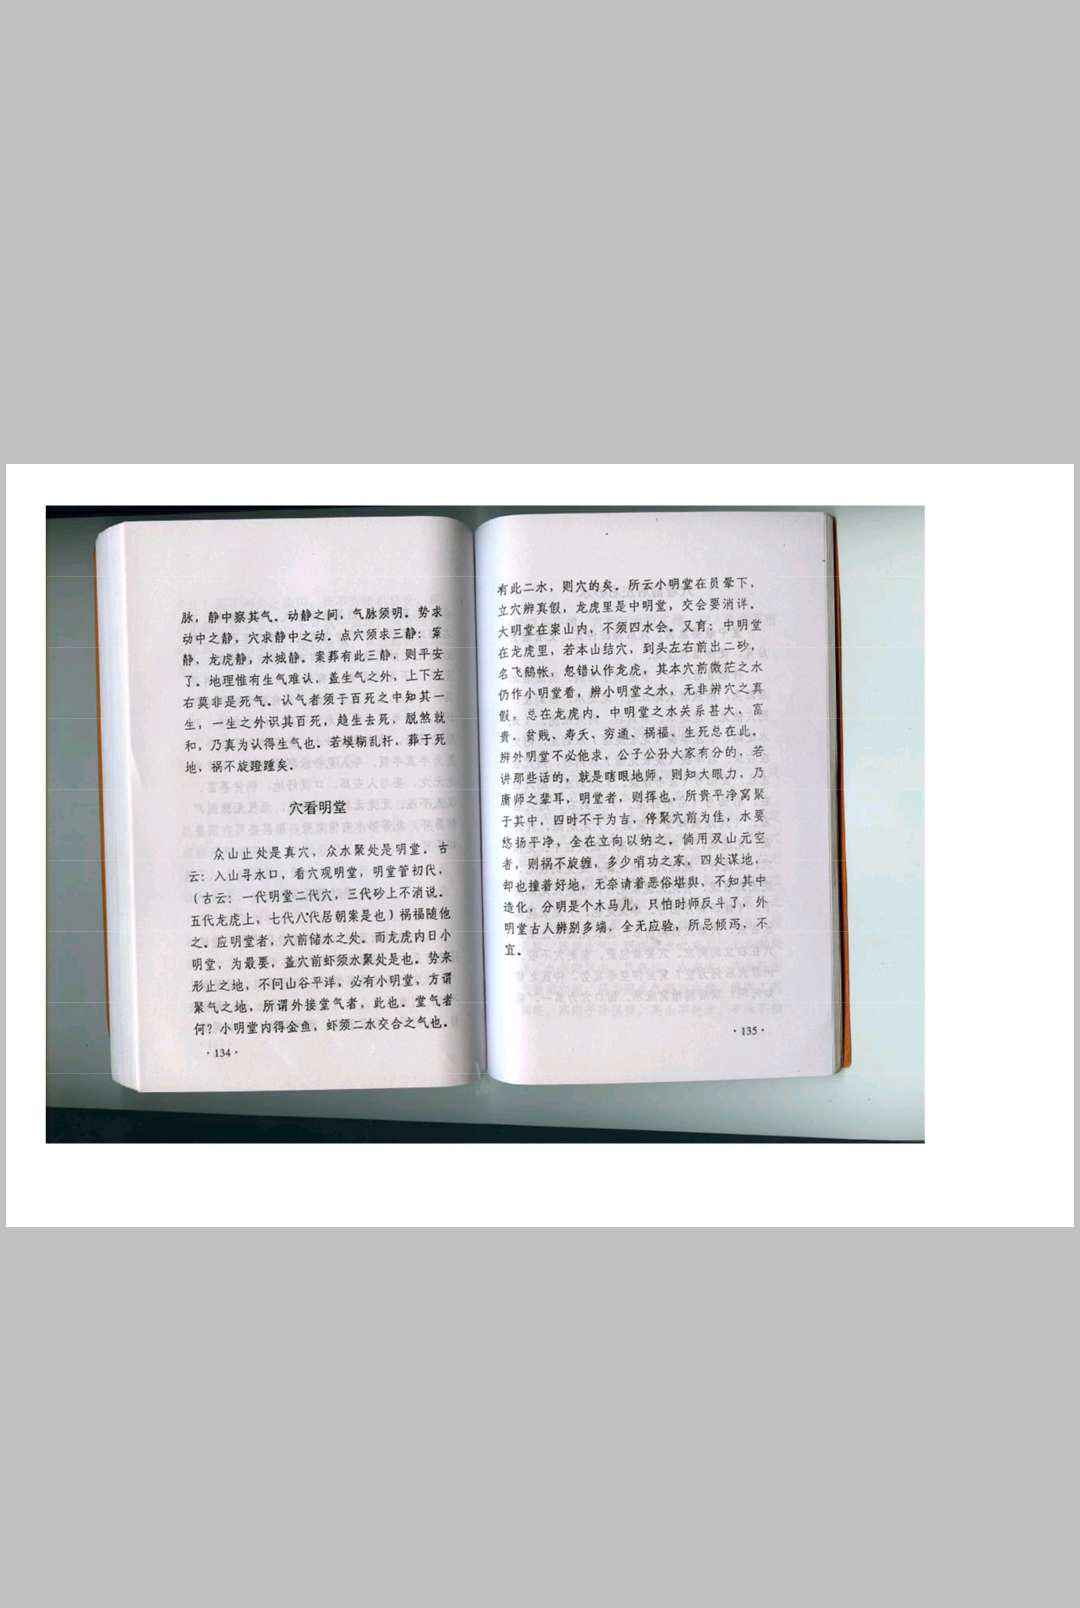 脉，静中察其气。动静之间，气脉须明。势求
动中之静，穴求静中之动。点穴须求三静：案
静，龙虎静，水城静。案葬有此三静，则平安
了。地理惟有生气难认，盖生气之外，上下左
右莫非是死气。认气者须于百死之中知其一
生，一生之外识其百死，趋生去死，脱然就
和，乃真为认得生气也。若模糊乱扦，葬于死
地，祸不旋蹬踵矣。
穴看明堂
众山止处是真穴，众水聚处是明堂。古
云：入山寻水口，看穴观明堂，明堂管初代，
（古云：一代明堂二代穴，三代砂上不消说。
五代龙虎上，七代八代居朝案是也）祸福随他
之。应明堂者，穴前储水之处。而龙虎内曰小
明堂，为最要，盖穴前虾须水聚处是也。势来
形止之地，不问山谷平洋，必有小明堂，方谓
聚气之地，所谓外接堂气者，此也。堂气者
何？小明堂内得金鱼，虾须二水交合之气也。
·134·
有此二水，则穴的矣。所云小明堂在员晕下，
立穴辨真假，龙虎里是中明堂，交会要消详。
大明堂在案山内，不须四水会。又有：中明堂
在龙虎里，若本山结穴，到头左右前出二砂，
名飞鹅帐，忽错认作龙虎，其本穴前微茫之水
仍作小明堂看，辨小明堂之水，无非辨穴之真
假，总在龙虎内。中明堂之水关系甚大、富
贵、贫贱、寿夭、穷通、祸福、生死总在此。
辨外明堂不必他求，公子公孙大家有分的，若
讲那些话的，就是瞎眼地师，则知大眼力，乃
庸师之辈耳，明堂者，则挥也，所贵平净窝聚
于其中，四时不干为吉，停聚穴前为佳，水要
悠扬平净，全在立向以纳之。倘用双山元空
者，则祸不旋缠，多少哨功之家，四处谋地，
却也撞着好地，无奈请着恶俗堪舆，不知其中
造化，分明是个木马儿，只怕时师反斗了，外
明堂古人辨别多端，全无应验，所忌倾泻，不
宜。
·135·